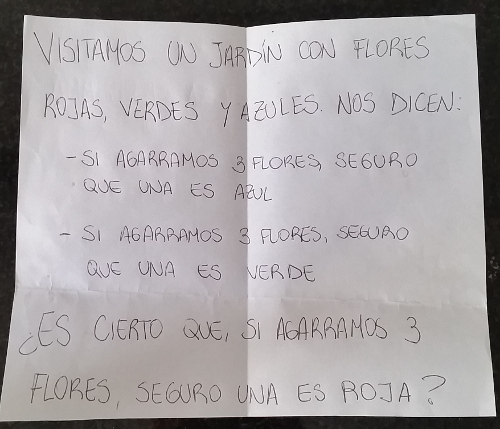 VISITAMOS UN JARDÍN CON FLORES
ROJAS, VERDES Y AZULES. NOS DICEN:
- SI AGARRAMOS 3 FLORES, SEGURO
QUE UNA ES AZUL
- SI AGARRAMOS 3 FLORES, SEGURO
QUE UNA ES VERDE
¿ES CIERTO QUE, SI AGARRAMOS 3
FLORES, SEGURO UNA ES ROJA?